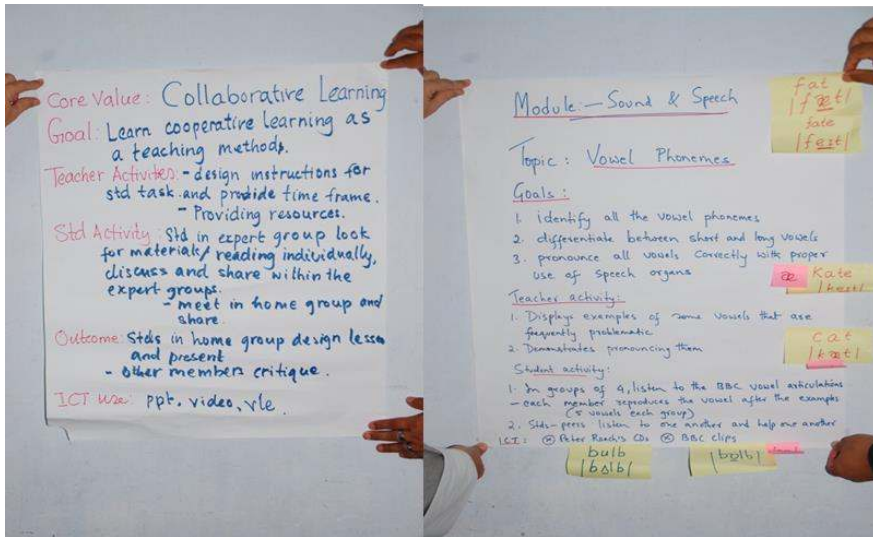 Core Value: Collaborative Learning
Goal: Learn cooperative learning as
a teaching methods.
Teacher Activities: - design instructions for
std task and provide time frame.
- Providing resources.
Std Activity: Std in expert group look
for materials/ reading individually,
discuss and share within the
expert groups.
- meet in home group and
share.
Outcome: Stds in home group design lesson
and present
- other members critique.
ICT use: ppt, video, vle.
Module:- Sound & Speech
Topic: Vowel Phonemes
Goals:
1. identify all the vowel phonemes
2. differentiate between short and long vowels
3. pronounce all vowels correctly with proper
use of speech organs
Teacher activity:
1. Displays examples of some vowels that are
frequently problematic
2. Demonstrates pronouncing them
Student activity:
1. In groups of 4, listen to the BBC vowel articulations
- each member reproduces the vowel after the examples
(5 vowels each group)
2. Stds-peers listen to one another and help one another
ICT: Peter Roach's CDs BBC clips
fat
|fæt|
fate
|feɪt|
æ Kate
|keɪt|
cat
|kæt|
bulb
|bʌlb|